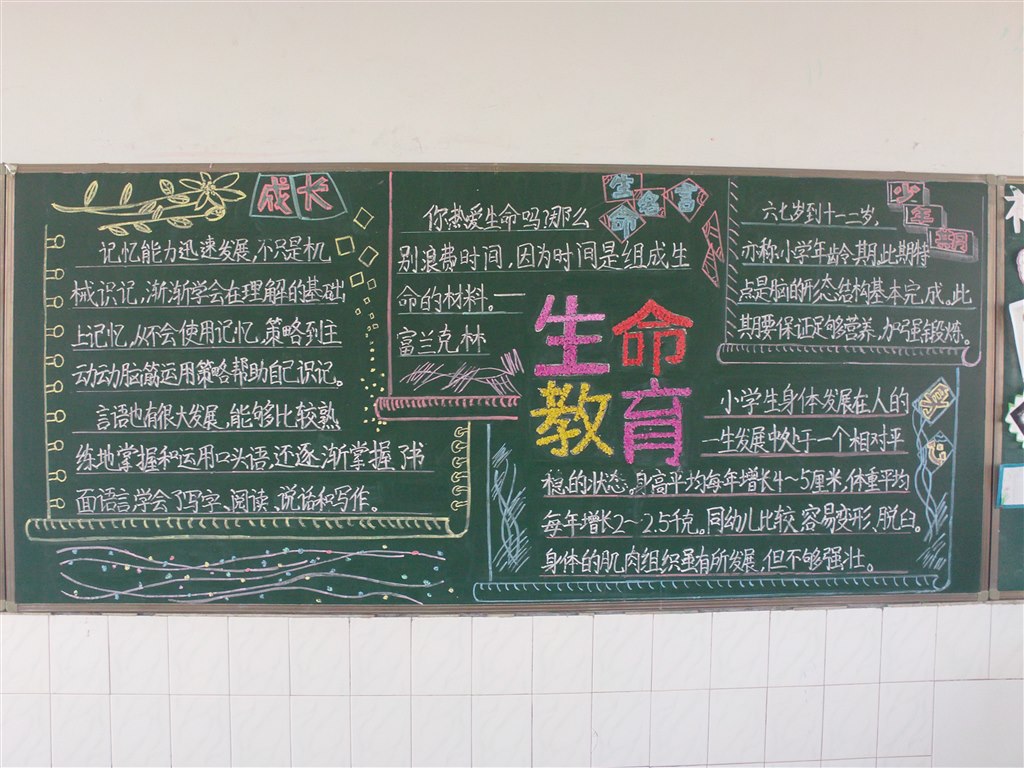 成长
记忆能力迅速发展，不只是机
械识记，渐渐学会在理解的基础
上记忆，从不会使用记忆，策略到主
动动脑筋运用策略帮助自己识记。
言语也有很大发展，能够比较熟
练地掌握和运用口头语，还逐渐掌握了书
面语言学会了写字、阅读、说话和写作。
生命名言
你热爱生命吗？那么
别浪费时间，因为时间是组成生
命的材料。——
富兰克林
生命
教育
少年期
六七岁到十一二岁，
亦称小学年龄期，此期特
点是脑的形态结构基本完成。此
期要保证足够营养，加强锻炼。
小学生身体发展在人的
一生发展中处于一个相对平
稳的状态。身高平均每年增长4～5厘米，体重平均
每年增长2～2.5千克。同幼儿比较，容易变形、脱臼。
身体的肌肉组织虽有所发展，但不够强壮。